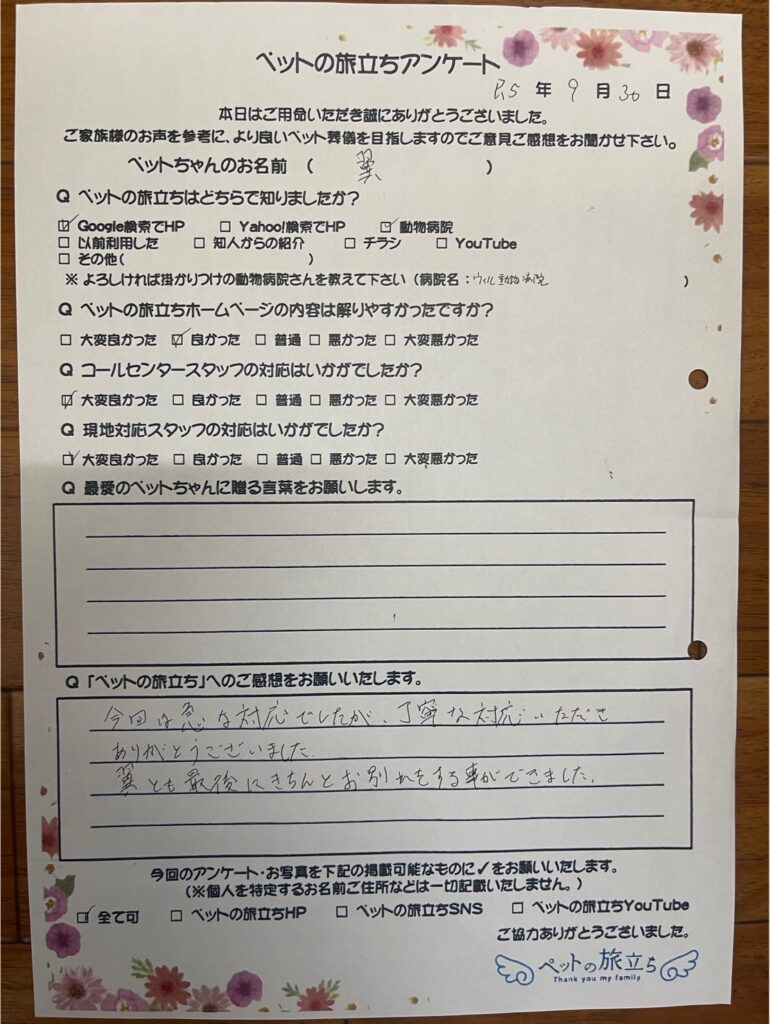 ペットの旅立ちアンケート
R5 年 9 月 30 日
本日はご用命いただき誠にありがとうございました。
ご家族様のお声を参考に、より良いペット葬儀を目指しますのでご意見ご感想をお聞かせ下さい。
ペットちゃんのお名前 ( 翼 )
Q ペットの旅立ちはどちらで知りましたか？
☑ Google検索でHP □ Yahoo!検索でHP ☑ 動物病院
□ 以前利用した □ 知人からの紹介 □ チラシ □ YouTube
□ その他( )
※ よろしければ掛かりつけの動物病院さんを教えて下さい（病院名：ウィル動物病院 ）
Q ペットの旅立ちホームページの内容は解りやすかったですか？
□ 大変良かった ☑ 良かった □ 普通 □ 悪かった □ 大変悪かった
Q コールセンタースタッフの対応はいかがでしたか？
☑ 大変良かった □ 良かった □ 普通 □ 悪かった □ 大変悪かった
Q 現地対応スタッフの対応はいかがでしたか？
☑ 大変良かった □ 良かった □ 普通 □ 悪かった □ 大変悪かった
Q 最愛のペットちゃんに贈る言葉をお願いします。
Q 「ペットの旅立ち」へのご感想をお願いいたします。
今回は急な対応でしたが、丁寧な対応いただき
ありがとうございました.
翼とも最後にきちんとお別れをする事ができました.
今回のアンケート・お写真を下記の掲載可能なものに✓をお願いいたします。
（※個人を特定するお名前ご住所などは一切記載いたしません。）
☑ 全て可 □ ペットの旅立ちHP □ ペットの旅立ちSNS □ ペットの旅立ちYouTube
ご協力ありがとうございました。
ペットの旅立ち
Thank you my family